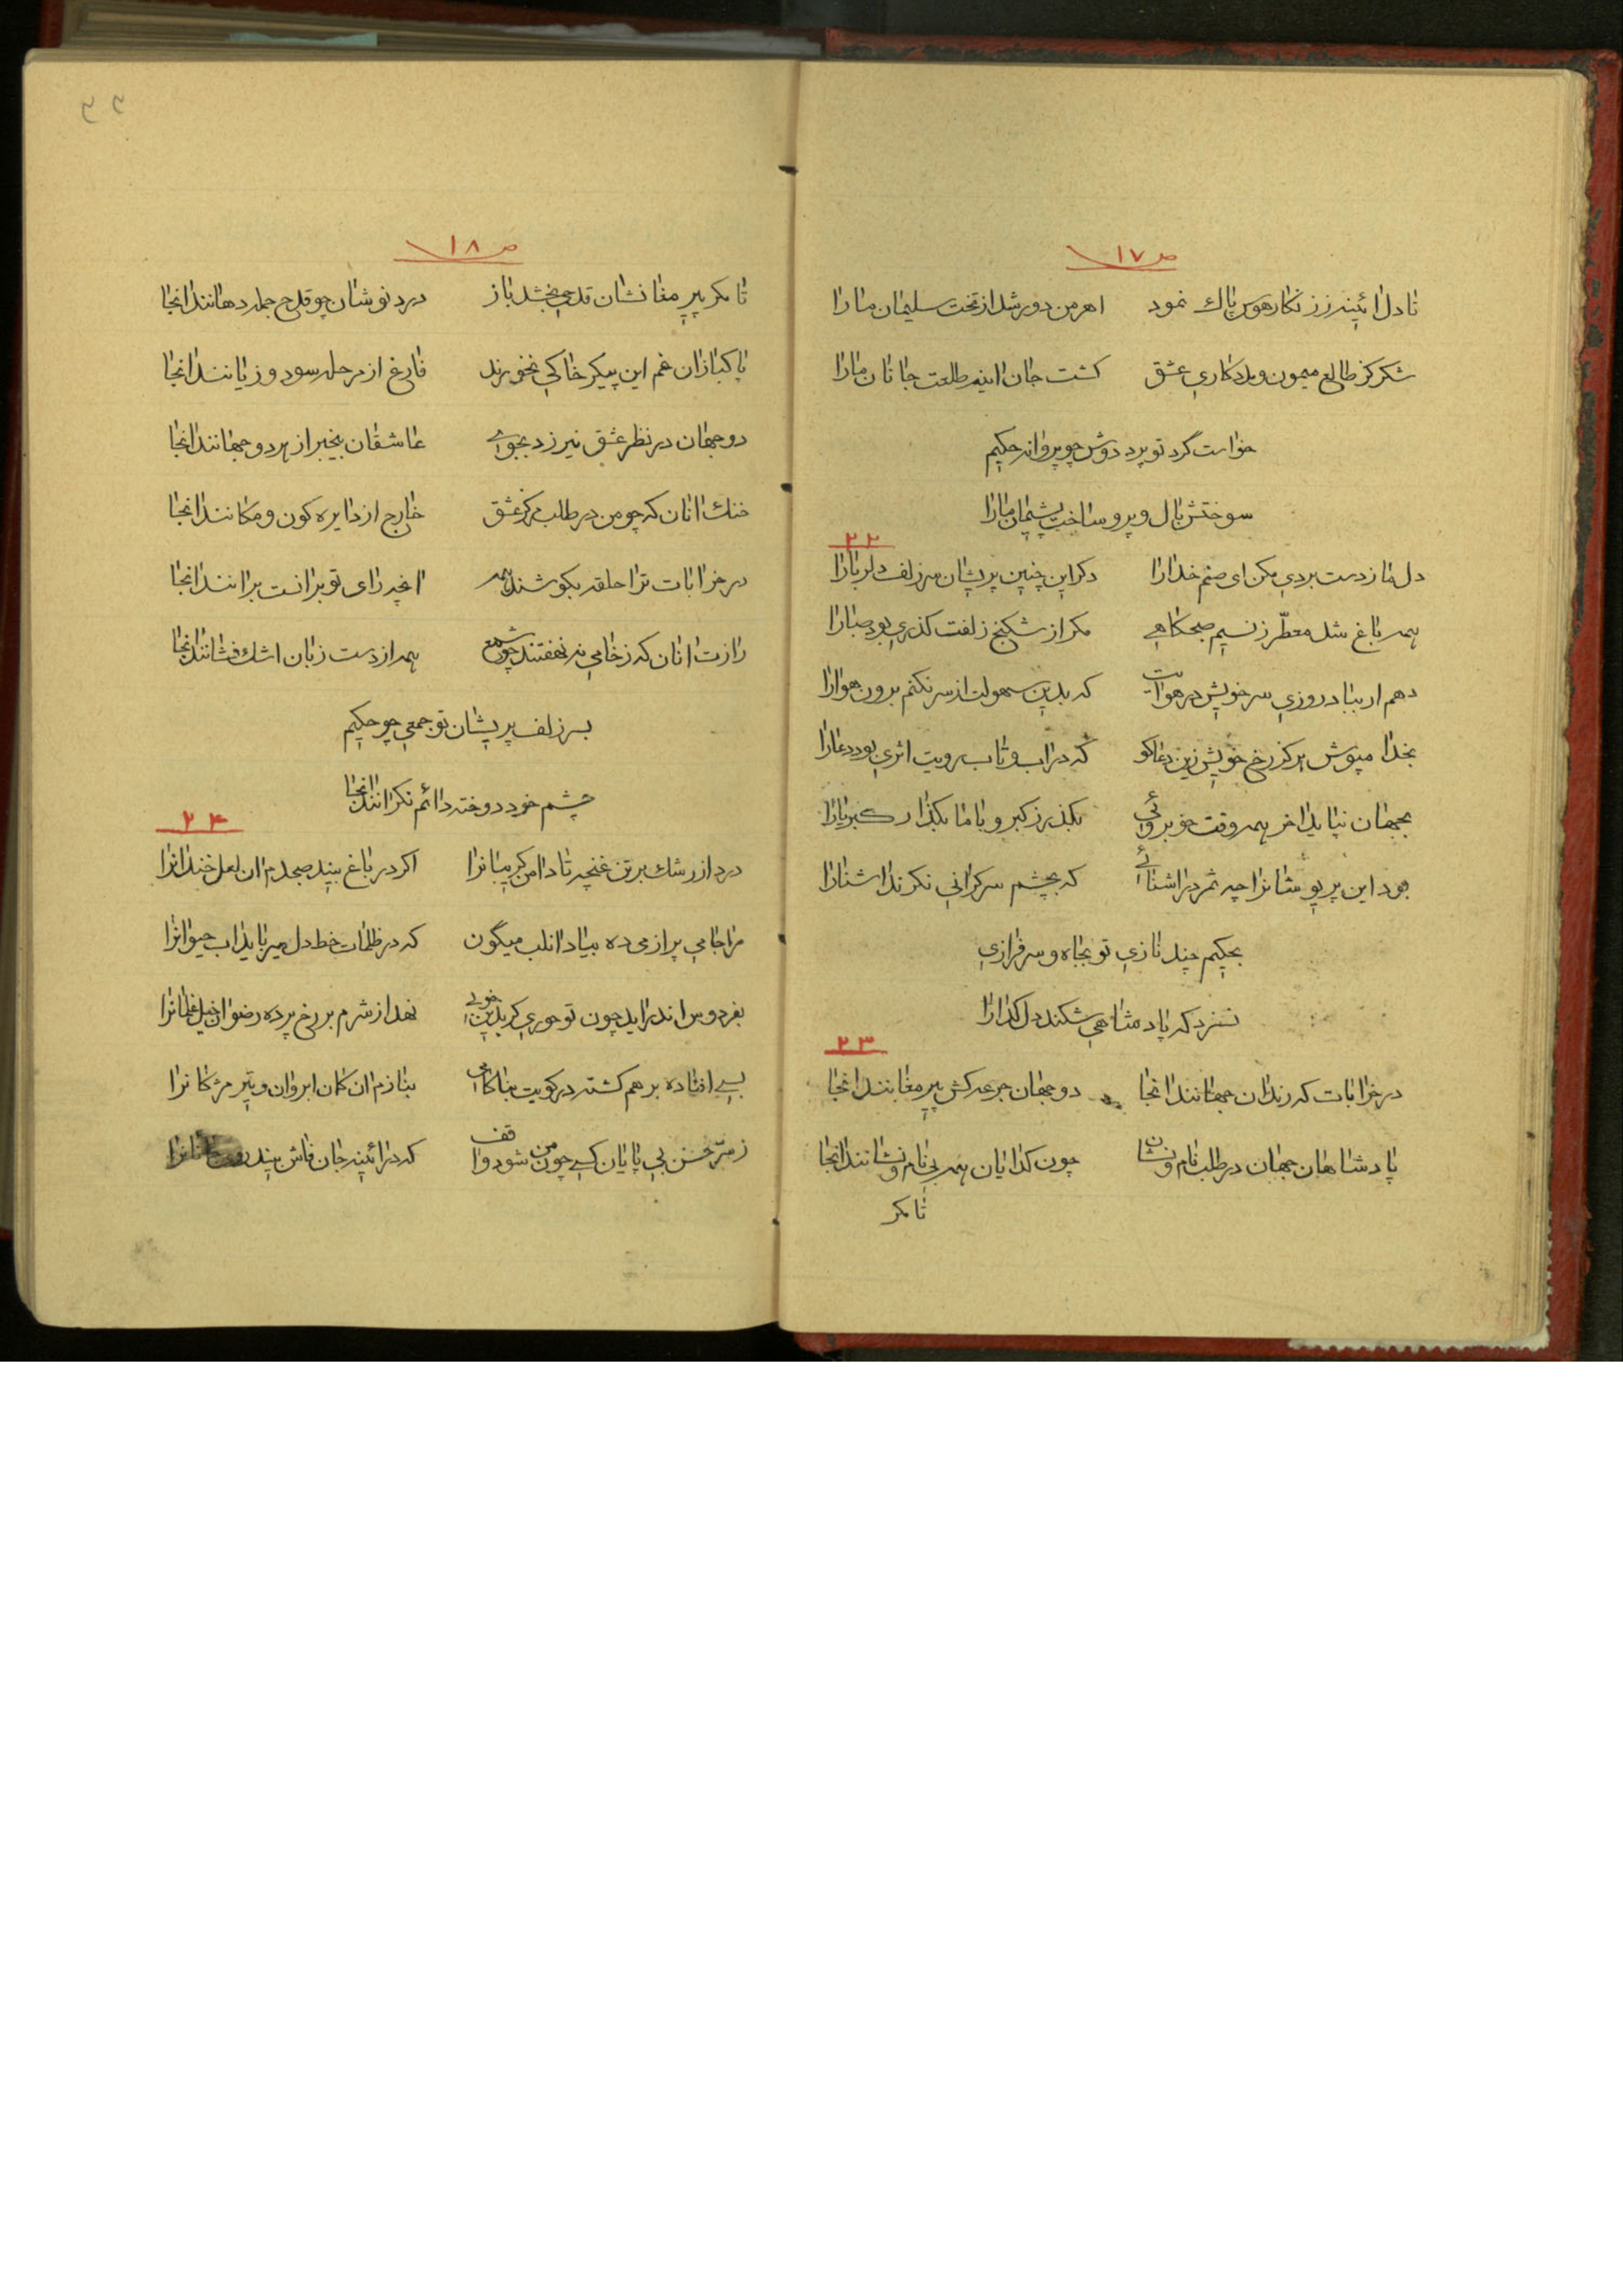 ص ١٧
تا دل ائینه ز زنکار هوس پاك نمود اهرمن دور شد از تخت سلیمان ما را
شکر کز طالع میمون و مددکاری عشق کشت جان اینه طلعت جانان ما را
خواست گرد تو پرد دوش چو پروانه حکیم
سوختش بال و پر و ساخت پشیمان ما را
٢٢
دل ما ز دست بردی مکن ای صنم خدا را دکر این چنین پریشان سر زلف دلربا را
همه باغ شد معطّر ز نسیم صبحکاهی مکر از شکنج زلفت کذری بود صبا را
دهم ار بباد روزی سر خویش در هوایت که بدین سهولت از سر نکنم برون هوا را
بخدا مپوش هرکز رخ خویش زین دعاکو که در اب و تاب رویت اثری بود دعا را
بجهان نپاید اخر همه وقت خوبروئی بکذر ز کبر و با ما بکذار کبریا را
بود این پریوشانرا چه ثمر در اشنائی که بچشم سرکرانی نکرند اشنا را
بحکیم چند نازی تو بجاه و سرفرازی
نسزد که پادشاهی شکند دل کدا را
٢٣
در خرابات که رندان جهانند انجا دو جهان جرعه کش پیر مغانند انجا
پادشاهان جهان در طلب نام و نشان چون کدایان همه بی نام و نشانند انجا
تا مکر
ص ١٨
تا مکر پیر مغانشان قدحی بخشد باز درد نوشان چو قدح جمله دهانند انجا
پاکبازان غم این پیکر خاکی نخورند فارغ از مرحله سود و زیانند انجا
دو جهان در نظر عشق نیرزد بجوی عاشقان بیخبر از هر دو جهانند انجا
خنك انان که چو من در طلب مرکز عشق خارج از دایره کون و مکانند انجا
در خرابات ترا حلقه بکوشند همه انچه رای تو بر انست بر انند انجا
رازت انان که ز خامی نه نهفتند چو شمع همه از دست زبان اشك فشانند انجا
بسر زلف پریشان تو جمعی چو حکیم
چشم خود دوخته دائم نکرانند انجا
٢٤
درد از رشك بر تن غنچه تا دامن کریبانرا اکر در باغ بیند صبحدم ان لعل خندانرا
مرا جامی پر از می ده بیاد ان لب میگون که در ظلمات خط دل میرباید اب حیوانرا
بفردوس اندر اید چون تو حوری کر بدین خوبی نهد از شرم بر رخ پرده رضوان خیل غلمانرا
بسی افتاده بر هم کشته در کویت بناکامی بنازم ان کمان ابروان و تیر مژکانرا
ز سرّ حسن بی پایان کسی چون من شود واقف که در ائینه جان فاش بیند